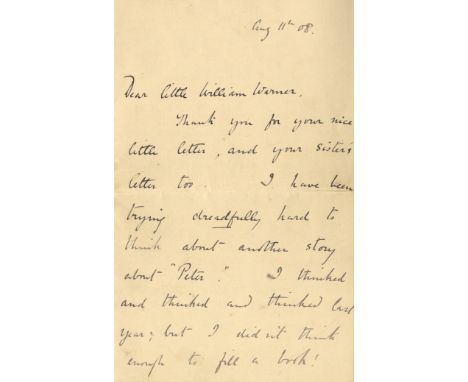 Aug 11th 08.
Dear little William Warner,
Thank you for your nice
little letter, and your sister's
letter too. I have been
trying dreadfully hard to
think about another story
about "Peter". I thinked
and thinked and thinked last
year; but I didn't think
enough to fill a book!